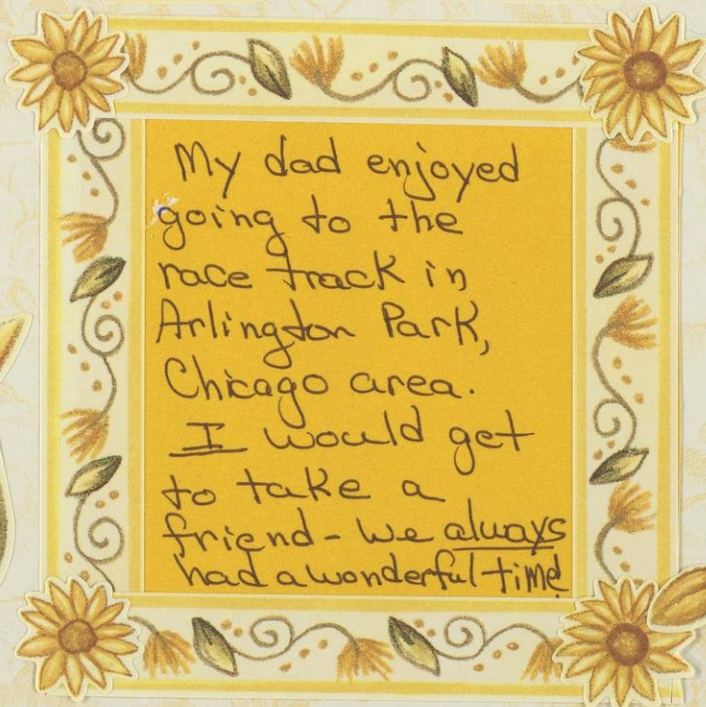 My dad enjoyed
going to the
race track in
Arlington Park,
Chicago area.
I would get
to take a
friend - we always
had a wonderful time!